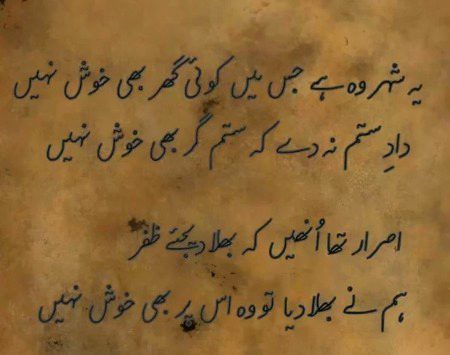 یہ شہر وہ ہے جس میں کوئی گھر بھی خوش نہیں
دادِ ستم نہ دے کہ ستم گر بھی خوش نہیں
اصرار تھا اُنھیں کہ بھلا دیجئے ظفر
ہم نے بھلا دیا تو وہ اس پر بھی خوش نہیں